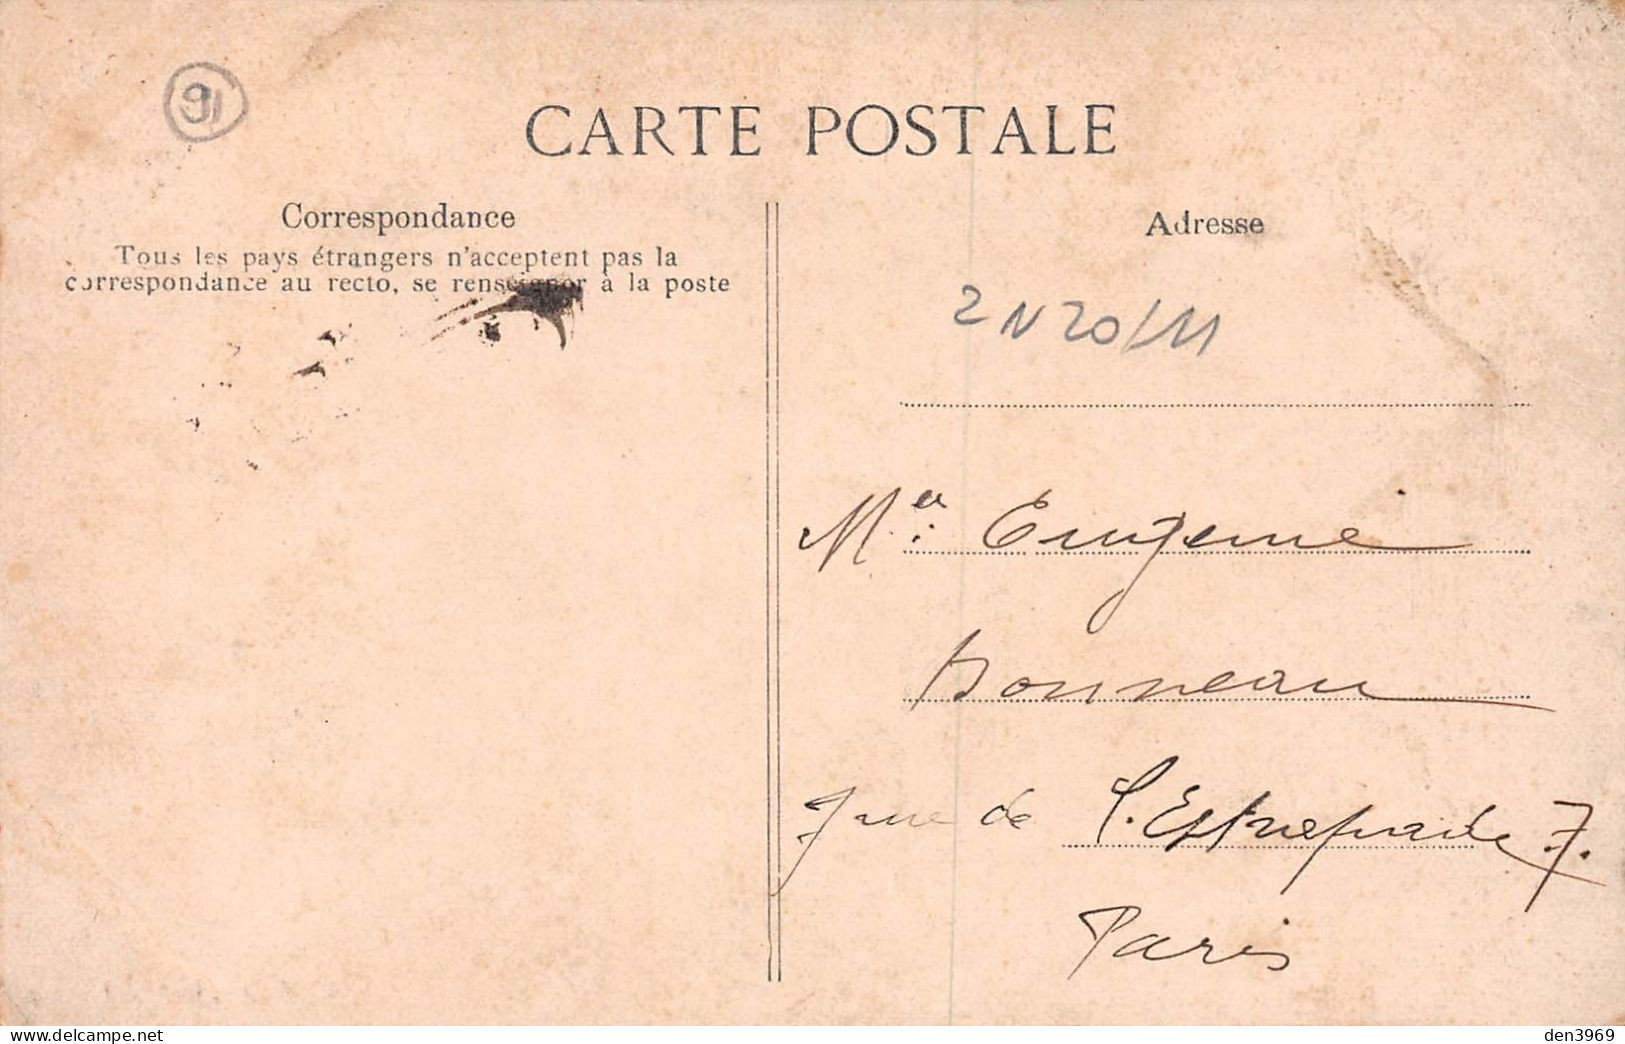 91
CARTE POSTALE
Correspondance
Tous les pays étrangers n'acceptent pas la
correspondance au recto, se renseigner à la poste
Adresse
2N20/11
Eugenie
Bonneau
7 rue de l'Estrapade 7.
Paris
www.delcampe.net
den3969